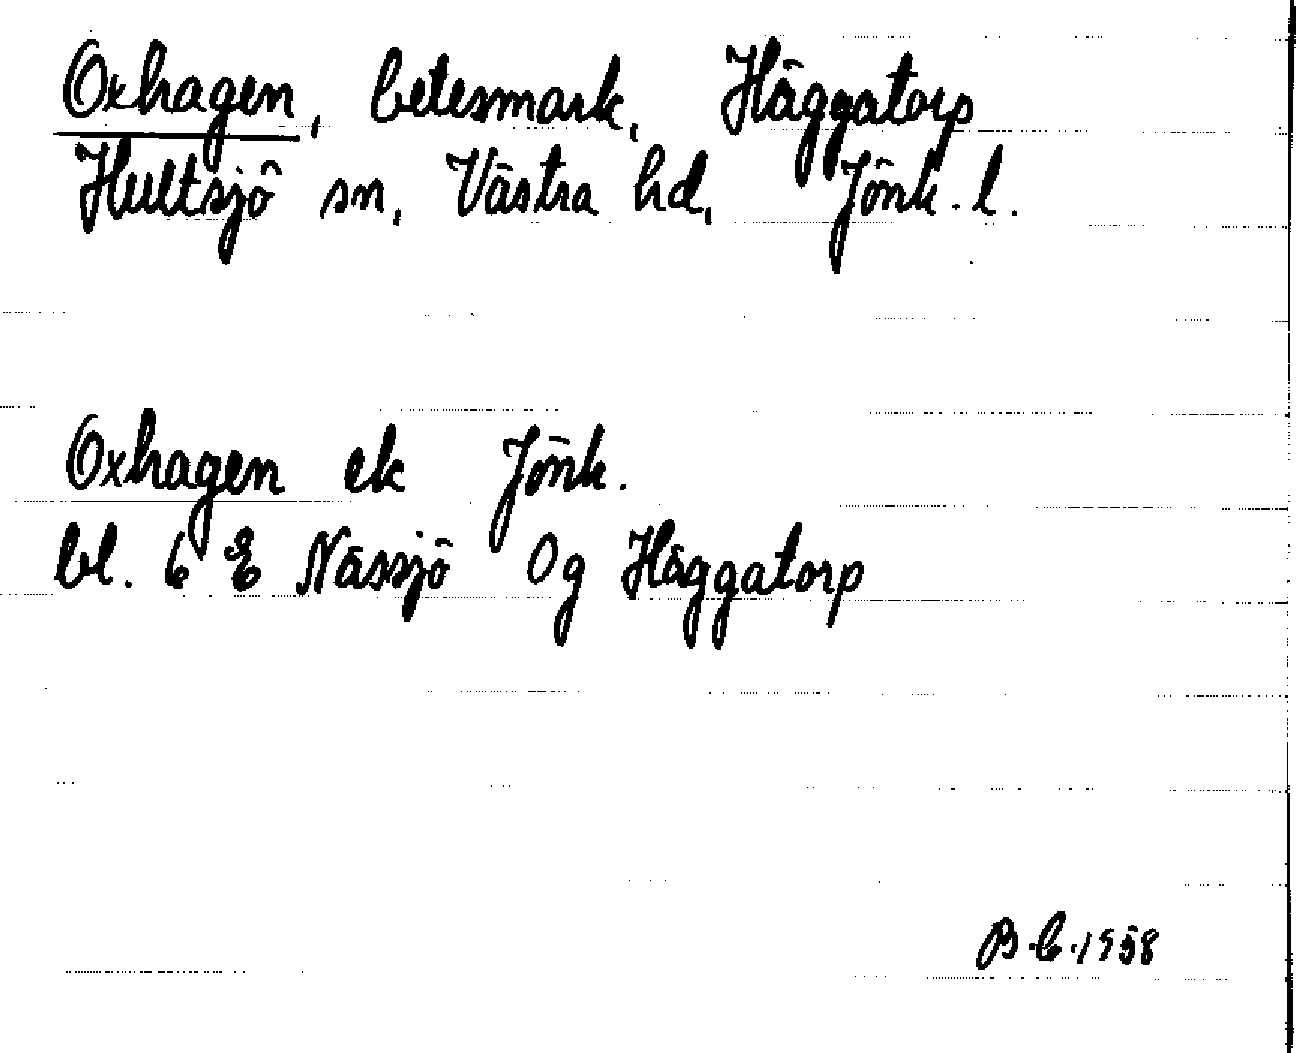 Oxhagen, betesmark, Häggatorp
Hultsjö sn, Västra hd, Jönk. l.
Oxhagen ek Jönk.
bl. 6 E Nässjö Og Häggatorp
B.C. 1958